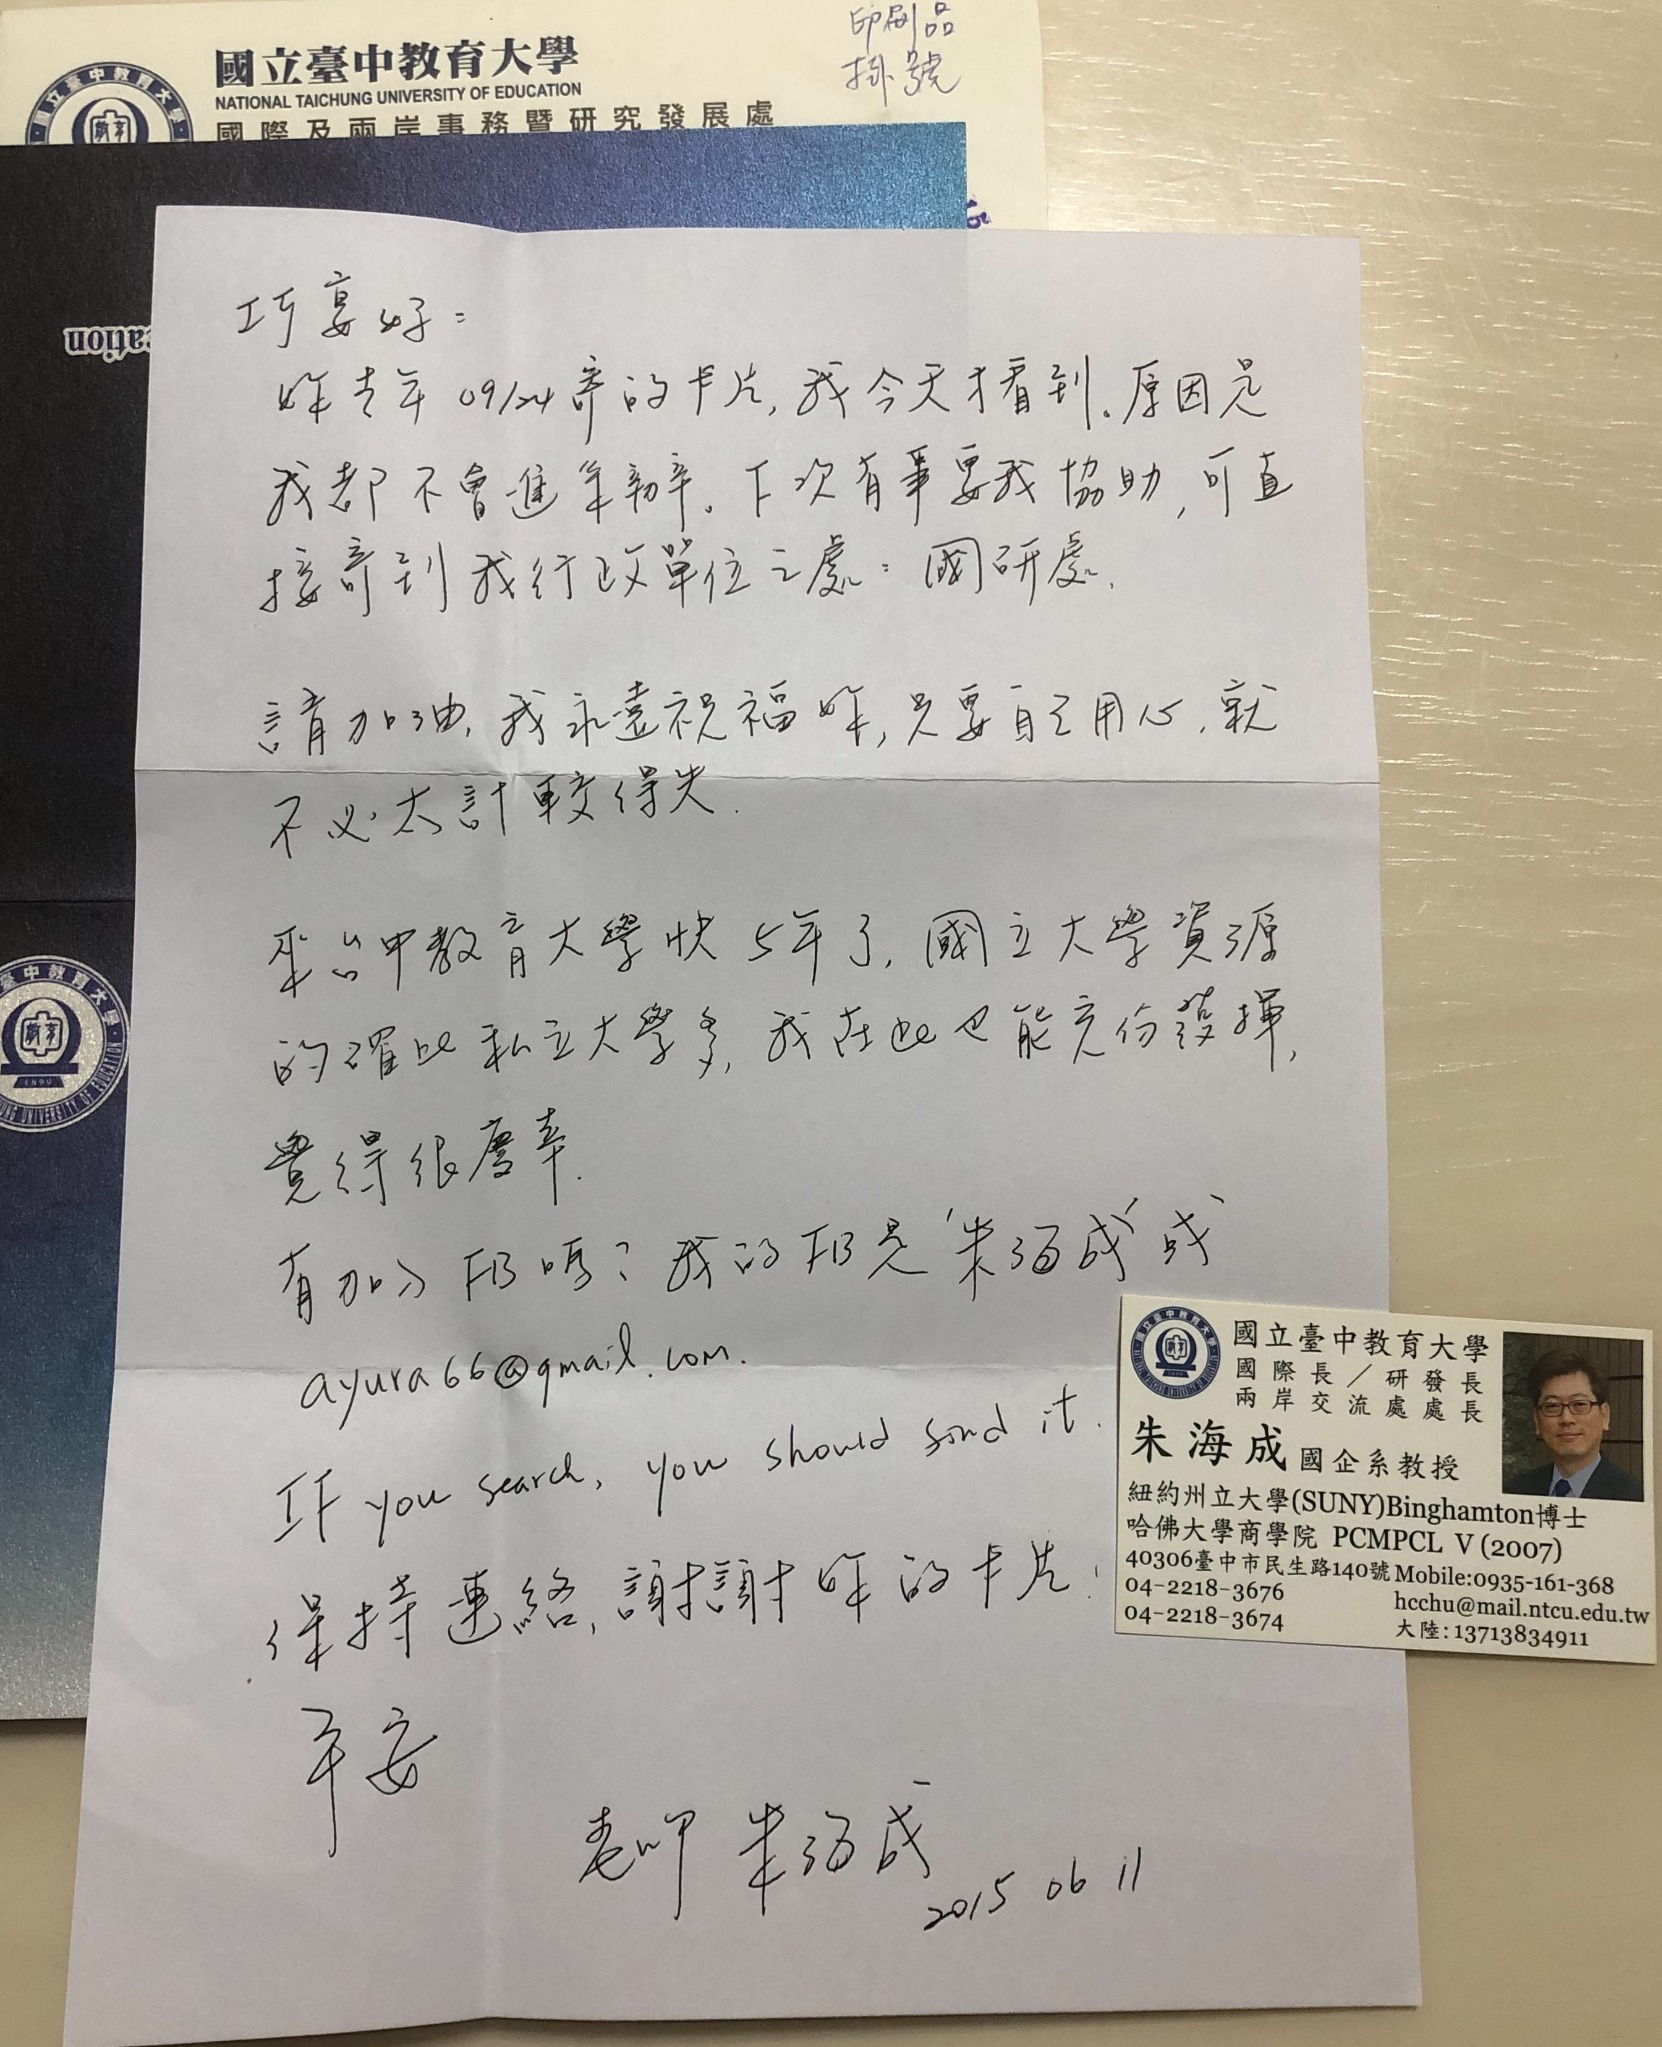 印刷品
掛號
國立臺中教育大學
NATIONAL TAICHUNG UNIVERSITY OF EDUCATION
國際及兩岸事務暨研究發展處
巧宴好：
妳去年09/24寄的卡片,我今天才看到。原因是
我都不會進系辦。下次有事要我協助,可直
接寄到我行政單位之處：國研處.
請加油,我永遠祝福妳,只要自己用心,就
不必太計較得失.
來台中教育大學快5年了,國立大學資源
的確比私立大學多,我在此也能充份發揮,
覺得很慶幸.
有加入FB嗎？我的FB是'朱海成'或
ayura66@gmail.com.
If you search, you should find it.
保持連絡,謝謝妳的卡片!
平安
老師 朱海成
2015 06 11
國立臺中教育大學
國際長／研發長
兩岸交流處處長
朱海成 國企系教授
紐約州立大學(SUNY)Binghamton博士
哈佛大學商學院 PCMPCL V (2007)
40306臺中市民生路140號 Mobile:0935-161-368
04-2218-3676 hcchu@mail.ntcu.edu.tw
04-2218-3674 大陸:13713834911